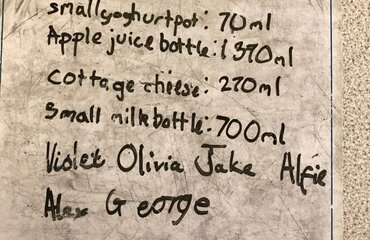 small yoghurt pot: 70ml
Apple juice bottle: 1370ml
cottage cheese: 270ml
small milk bottle: 700ml
Violet Olivia Jake Alfie
Alex George